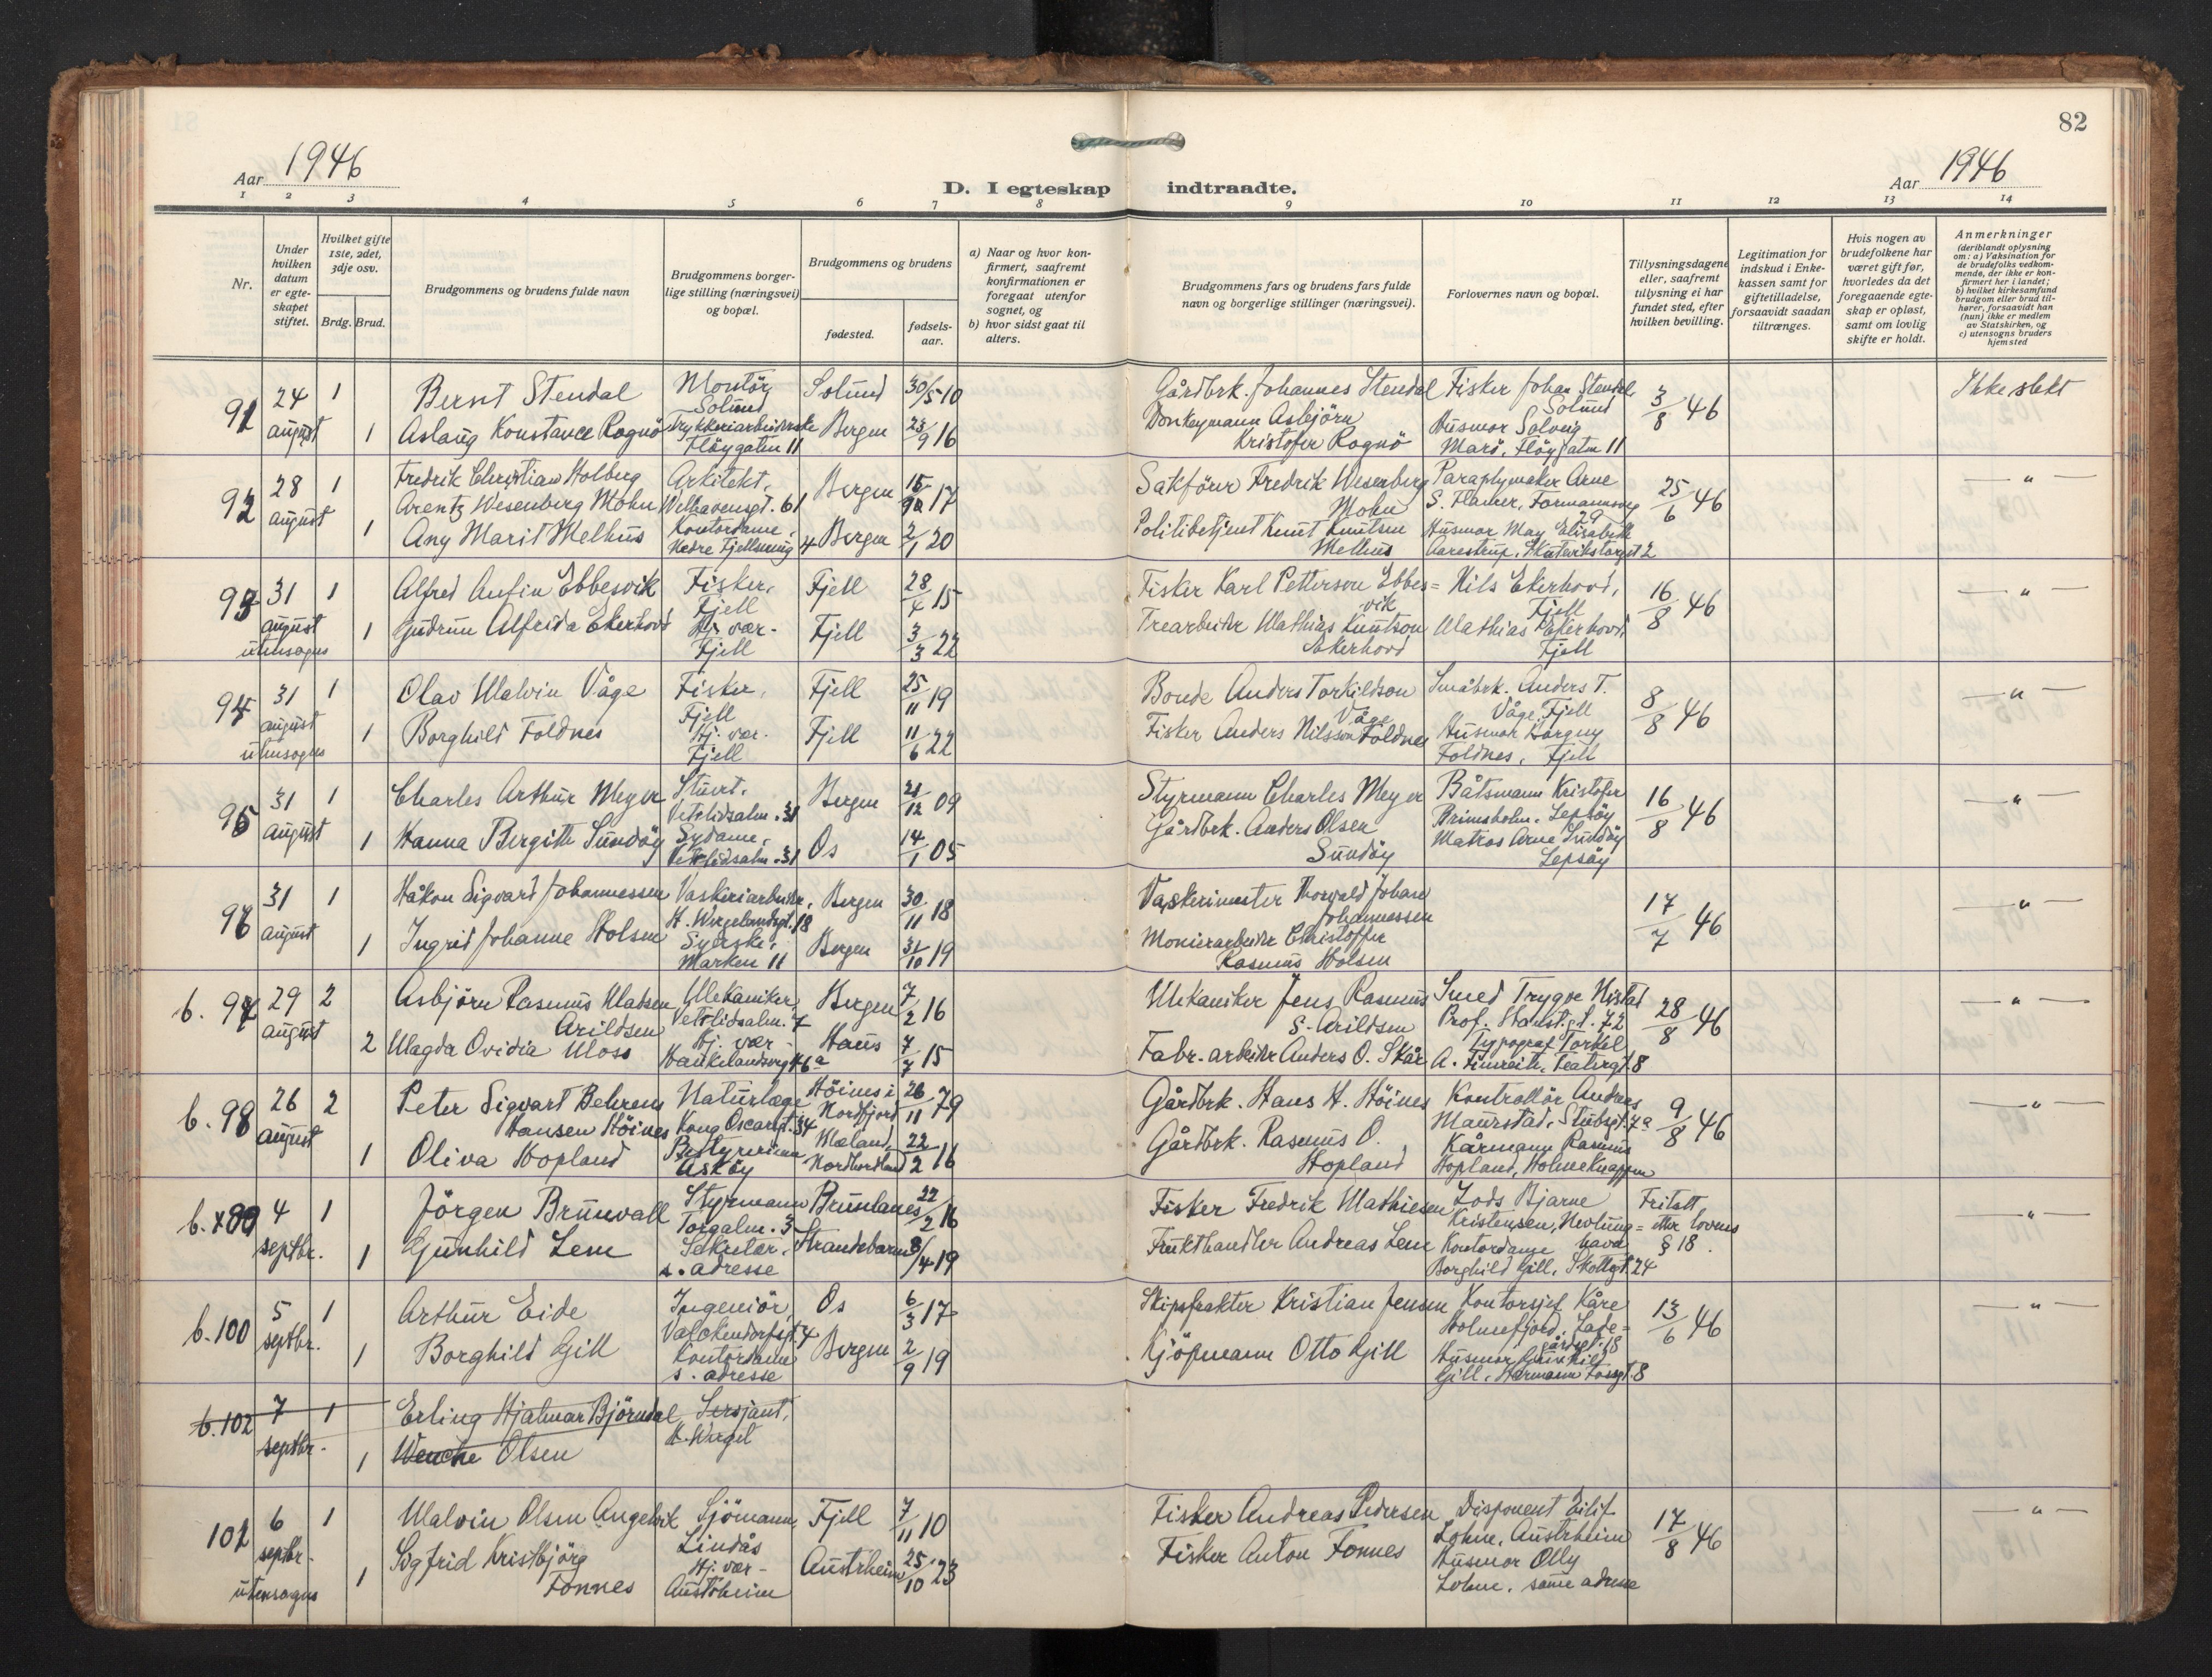 82
Aar 1946
D. I egteskap indtraadte.
Aar 1946
1 2 3 4 5 6 7 8 9 10 11 12 13 14
Nr.
Under hvilken datum er egteskapet stiftet.
Hvilket gifte 1ste, 2det, 3dje osv.
Brdg. Brud.
Brudgommens og brudens fulde navn
Brudgommens borgerlige stilling (næringsvei) og bopæl.
Brudgommens og brudens
fødested.
fødselsaar.
a) Naar og hvor konfirmert, saafremt konfirmationen er foregaat utenfor sognet, og
b) hvor sidst gaat til alters.
Brudgommens fars og brudens fars fulde navn og borgerlige stillinger (næringsvei).
Forlovernes navn og bopæl.
Tillysningsdagene eller, saafremt tillysning ei har fundet sted, efter hvilken bevilling.
Legitimation for indskud i Enkekassen samt for giftetilladelse, forsaavidt saadan tiltrænges.
Hvis nogen av brudefolkene har været gift før, hvorledes da det foregaaende egteskap er opløst, samt om lovlig skifte er holdt.
Anmerkninger
(deriblandt oplysning om: a) Vaksination for de brudefolks vedkommende, der ikke er konfirmert her i landet; b) hvilket kirkesamfund brudgom eller brud tilhører, forsaavidt han (hun) ikke er medlem av Statskirken, og c) utensogns bruders hjemsted
91 24 august 1 Bernt Stendal Montör Solund Solund 30/5 10 Gårdbrk. Johannes Stendal Fisker Johan Stendal, Solund 3/8 46 Ikke slekt
1 Aslaug Konstance Rognö Trykkeriarbeiderske Flöygaten 11 Bergen 23/9 16 Donkeymann Asbjörn Kristofer Rognö Husmor Solveig Marö, Flöygatn 11
92 28 august 1 Fredrik Christian Holberg Arentz Wesenberg Mohn Arkitekt, Welhavensgt. 61 Bergen 17 Sakförer Fredrik Wesenberg Mohn Paraplymaker Arne S. Flamer, Formannsvg 29 25/6 46 — " —
1 Any Marit Melhus Kontordame, Nedre Fjellsmug 4 Bergen 2/1 20 Politibetjent Knut Knutsen Melhus Husmor May Elisabeth Aarestrup, Skutevikstorget 2
93 31 august utensogns 1 Alfred Anfin Ebbesvik Fisker, Fjell Fjell 28/4 15 Fisker Karl Petterson Ebbesvik Nils Ekerhovd, Fjell 16/8 46 — " —
1 Gudrun Alfrida Ekerhovd Hj. vær. Fjell Fjell 3/3 22 Trearbeider Mathias Knutson Ekerhovd Mathias Ekerhovd, Fjell
94 31 august utensogns 1 Olav Malvin Våge Fisker, Fjell Fjell 25/11 19 Bonde Anders Torkildson Våge Småbrk. Anders T. Våge, Fjell 8/8 46 — " —
1 Borghild Foldnes Hj. vær. Fjell Fjell 11/6 22 Fisker Anders Nilsson Foldnes Husmor Dorguy Foldnes, Fjell
95 31 august 1 Charles Arthur Meyer Stuert, Vetrlidsalm. 31 Bergen 21/12 09 Styrmann Charles Meyer Båtsmann Kristofer Brimsholm, Lepsöy 16/8 46 — " —
1 Hanna Bergitte Sundöy Sydame, Vetrlidsalm. 31 Os 14/1 05 Gårdbrk. Anders Olsen Sundöy Matros Arne Sundöy Lepsöy
96 31 august 1 Håkon Sigvard Johannessen Vaskeriarbeider, H. Wergelandsgt. 18 Bergen 30/11 18 Vaskerimester Thorvald Johan Johannessen 17/7 46 — " —
1 Ingrid Johanne Holsen Syerske, Marken 11 Bergen 31/10 19 Monierarbeider Christoffer Rasmus Holsen
b. 97 29 august 2 Asbjörn Rasmus Madsen Arildsen Mekaniker, Vetrlidsalm. 7 Bergen 7/2 16 Mekaniker Jens Rasmus S. Arildsen Smed Trygve Nistad Prof. Hanst.gt. 72 28/8 46 — " —
2 Magda Ovidia Moss Hj. vær Haukelandsvg 46a Haus 7/7 15 Fabr. arbeider Anders O. Skår Typograf Torkel A. Finnseth, Teatergt. 8
b. 98 26 august 2 Peter Sigvart Behrens Hansen Höines Naturlæge Kong Oscarsgt. 34 Höines i Nordfjord 26/11 79 Gårdbrk. Hans H. Höines Kontrollör Andreas Maurstad, Stubsgt. 7a 9/8 46 — " —
1 Oliva Hopland Bestyrerinne Asköy Mæland, Nordhordland 22/2 16 Gårdbrk. Rasmus O. Hopland Kårmann Rasmus Hopland, Holmeknappen
b. 99 4 septbr. 1 Jörgen Brunvall Styrmann Torgalm. 3 Brunlanes 22/2 16 Fisker Fredrik Mathiesen Lods Bjarne Kristensen, Nevlunghavn Fritatt etter lovens § 18. — " —
1 Gunhild Lem Sekretær, s. adresse Strandebarm 8/4 19 Frukthandler Andreas Lem Kontordame Borghild Gill, Skottegt. 24
b. 100 5 septbr. 1 Arthur Eide Ingeniör, Valckendorfsgt. 4 Os 6/3 17 Skipsfrakter Kristian Jensen Kontorsjef Kåre Holmefjord, Ladegårdsgt. 18 13/6 46 — " —
1 Borghild Gill Kontordame s. adresse Bergen 2/9 19 Kjöpmann Otto Gill Husmor Gunhild Gill, Hermann Fossgt. 8
b. 102 7 septbr. 1 Erling Hjalmar Björndal Sersjant,
1 Wenche Olsen
101 6 septbr. utensogns 1 Malvin Olsen Angelvik Sjömann, Lindås Fjell 7/11 10 Fisker Andreas Pedersen Disponent Eilif Lohne, Austrheim 17/8 46 — " —
1 Sigfrid Kristbjörg Fonnes Hj. vær. Austrheim Austrheim 25/10 23 Fisker Anton Fonnes Husmor Olly Lohne, samme adresse